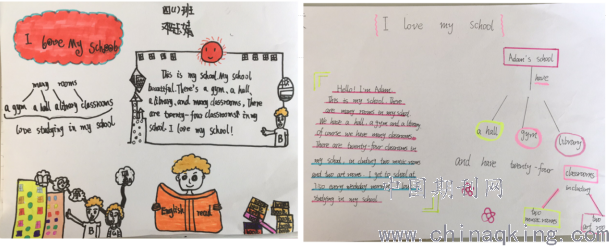 四(1)班
I Love My School
many rooms
a gym a hall a library classrooms
love studying in my school
This is my school. My school
beautiful. There's a gym, a hall,
a library, and many classrooms. There
are twenty-four classrooms in my
school. I love my school!
B
B
English read
I love my school
Adam's school
have
a hall
gym
library
and have twenty-four
classrooms
including
two music rooms
two art
Hello! I'm Adam.
This is my school. There
are many rooms in my school
We have a hall, a gym and a library
Of course we have many classrooms
There are twenty-four classrooms in
my school, including two music rooms
and two art rooms. I get to school at
every weekday
studying in my school.
中国期刊网
www.chinaqking.com